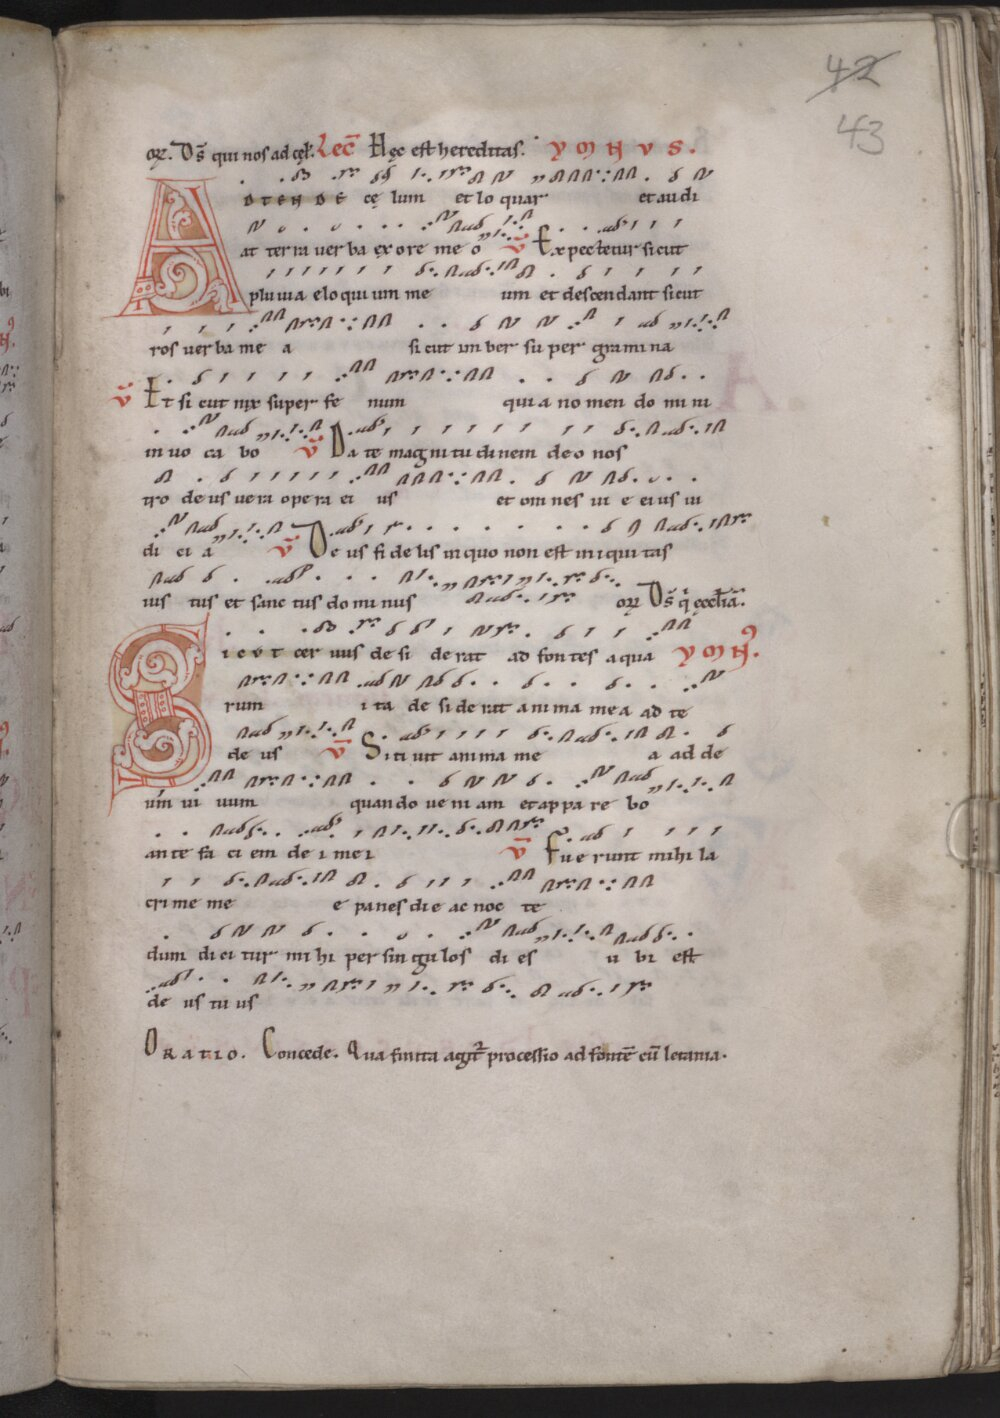 42
43
orꝫ. Ds̄ qui nos ad cęl. Lec̄ Hęc est hereditas. YMNVS.
ADTENDE cę lum et lo quar et au di
at ter ra uer ba ex ore me o V̄ Ex pec tetur si cut
plu uia elo qui um me um et descendant sicut
ros uer ba me a si cut im ber su per gra mi na
V̄ Et si cut nix super fe num qui a no men do mi ni
in uo ca bo V̄ Da te mag ni tu di nem de o nos
tro de us uera ope ra ei us et om nes ui e eius iu
di ci a V̄ De us fi de lis in quo non est in i qui tas
ius tus et sanc tus do mi nus orꝫ Ds̄ q̄ ęcclīa.
SICVT cer uus de si de rat ad fon tes a qua YMN̄.
rum i ta de si de rat a ni ma me a ad te
de us V̄ Si ti uit ani ma me a ad de
um ui uum quan do ue ni am et ap pa re bo
an te fa ci em de i me i V̄ Fu e runt mihi la
cri me me e panes di e ac noc te
dum di ci tur mi hi per sin gu los di es u bi est
de us tu us
ORATIO. Concede. Qua finita agit̄ processio ad fontē cū letania.